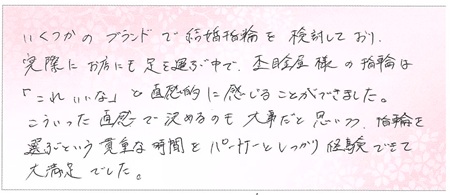 いくつかのブランドで結婚指輪を検討しており、
実際にお店にも足を運ぶ中で、杢目金屋様の指輪は
「これいいな」と直感的に感じることができました。
こういった直感で決めるのも大事だと思いつつ、指輪を
選ぶという貴重な時間をパートナーとしっかり経験できて
大満足でした。